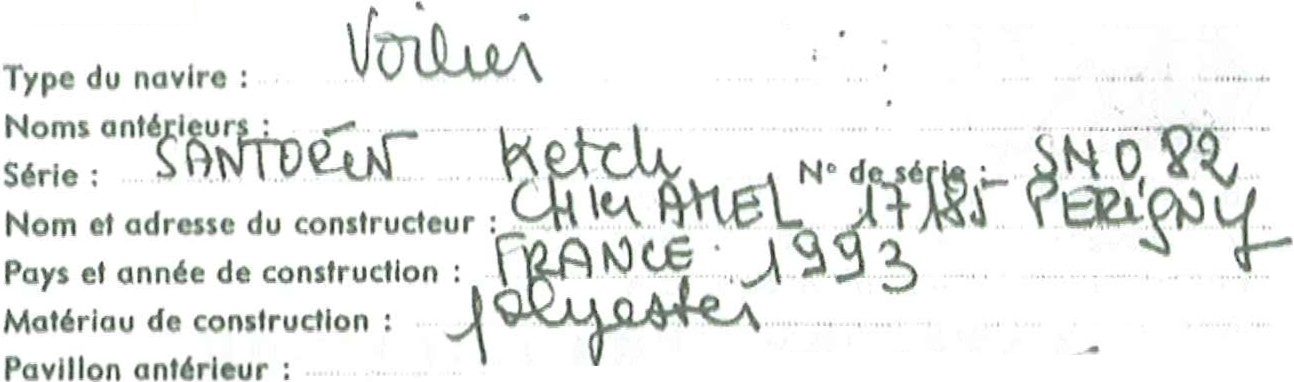 Type du navire : Voilier
Noms antérieurs :
Série : SANTORIN Ketch N° de série : SNO 82
Nom et adresse du constructeur : CHier AMEL 17185 PERIGNY
Pays et année de construction : FRANCE 1993
Matériau de construction : polyester
Pavillon antérieur :